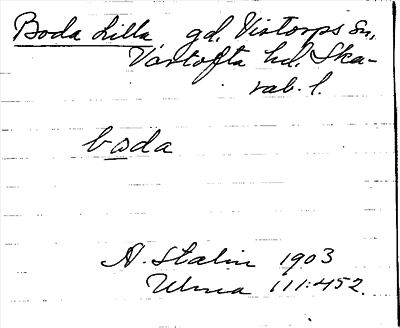 Boda Lilla gd. Vistorps sn,
Vartofta hd. Ska-
rab. l.
boda
N. Stalin 1903
Ulma 111:452.